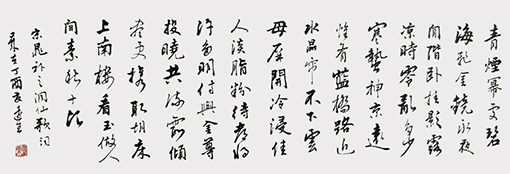 青煙冪處碧
海飛金鏡永夜
閒階卧桂影露
涼時零亂多少
寒螿神京遠
惟有藍橋路近
水晶帘不下雲
母屏開冷浸佳
人淡脂粉待都將
許多明付與金尊
投曉共流霞傾
盡更攜取胡床
上南樓看玉做人
間素秋千頃
宋晁補之洞仙歌詞
歲在丁酉